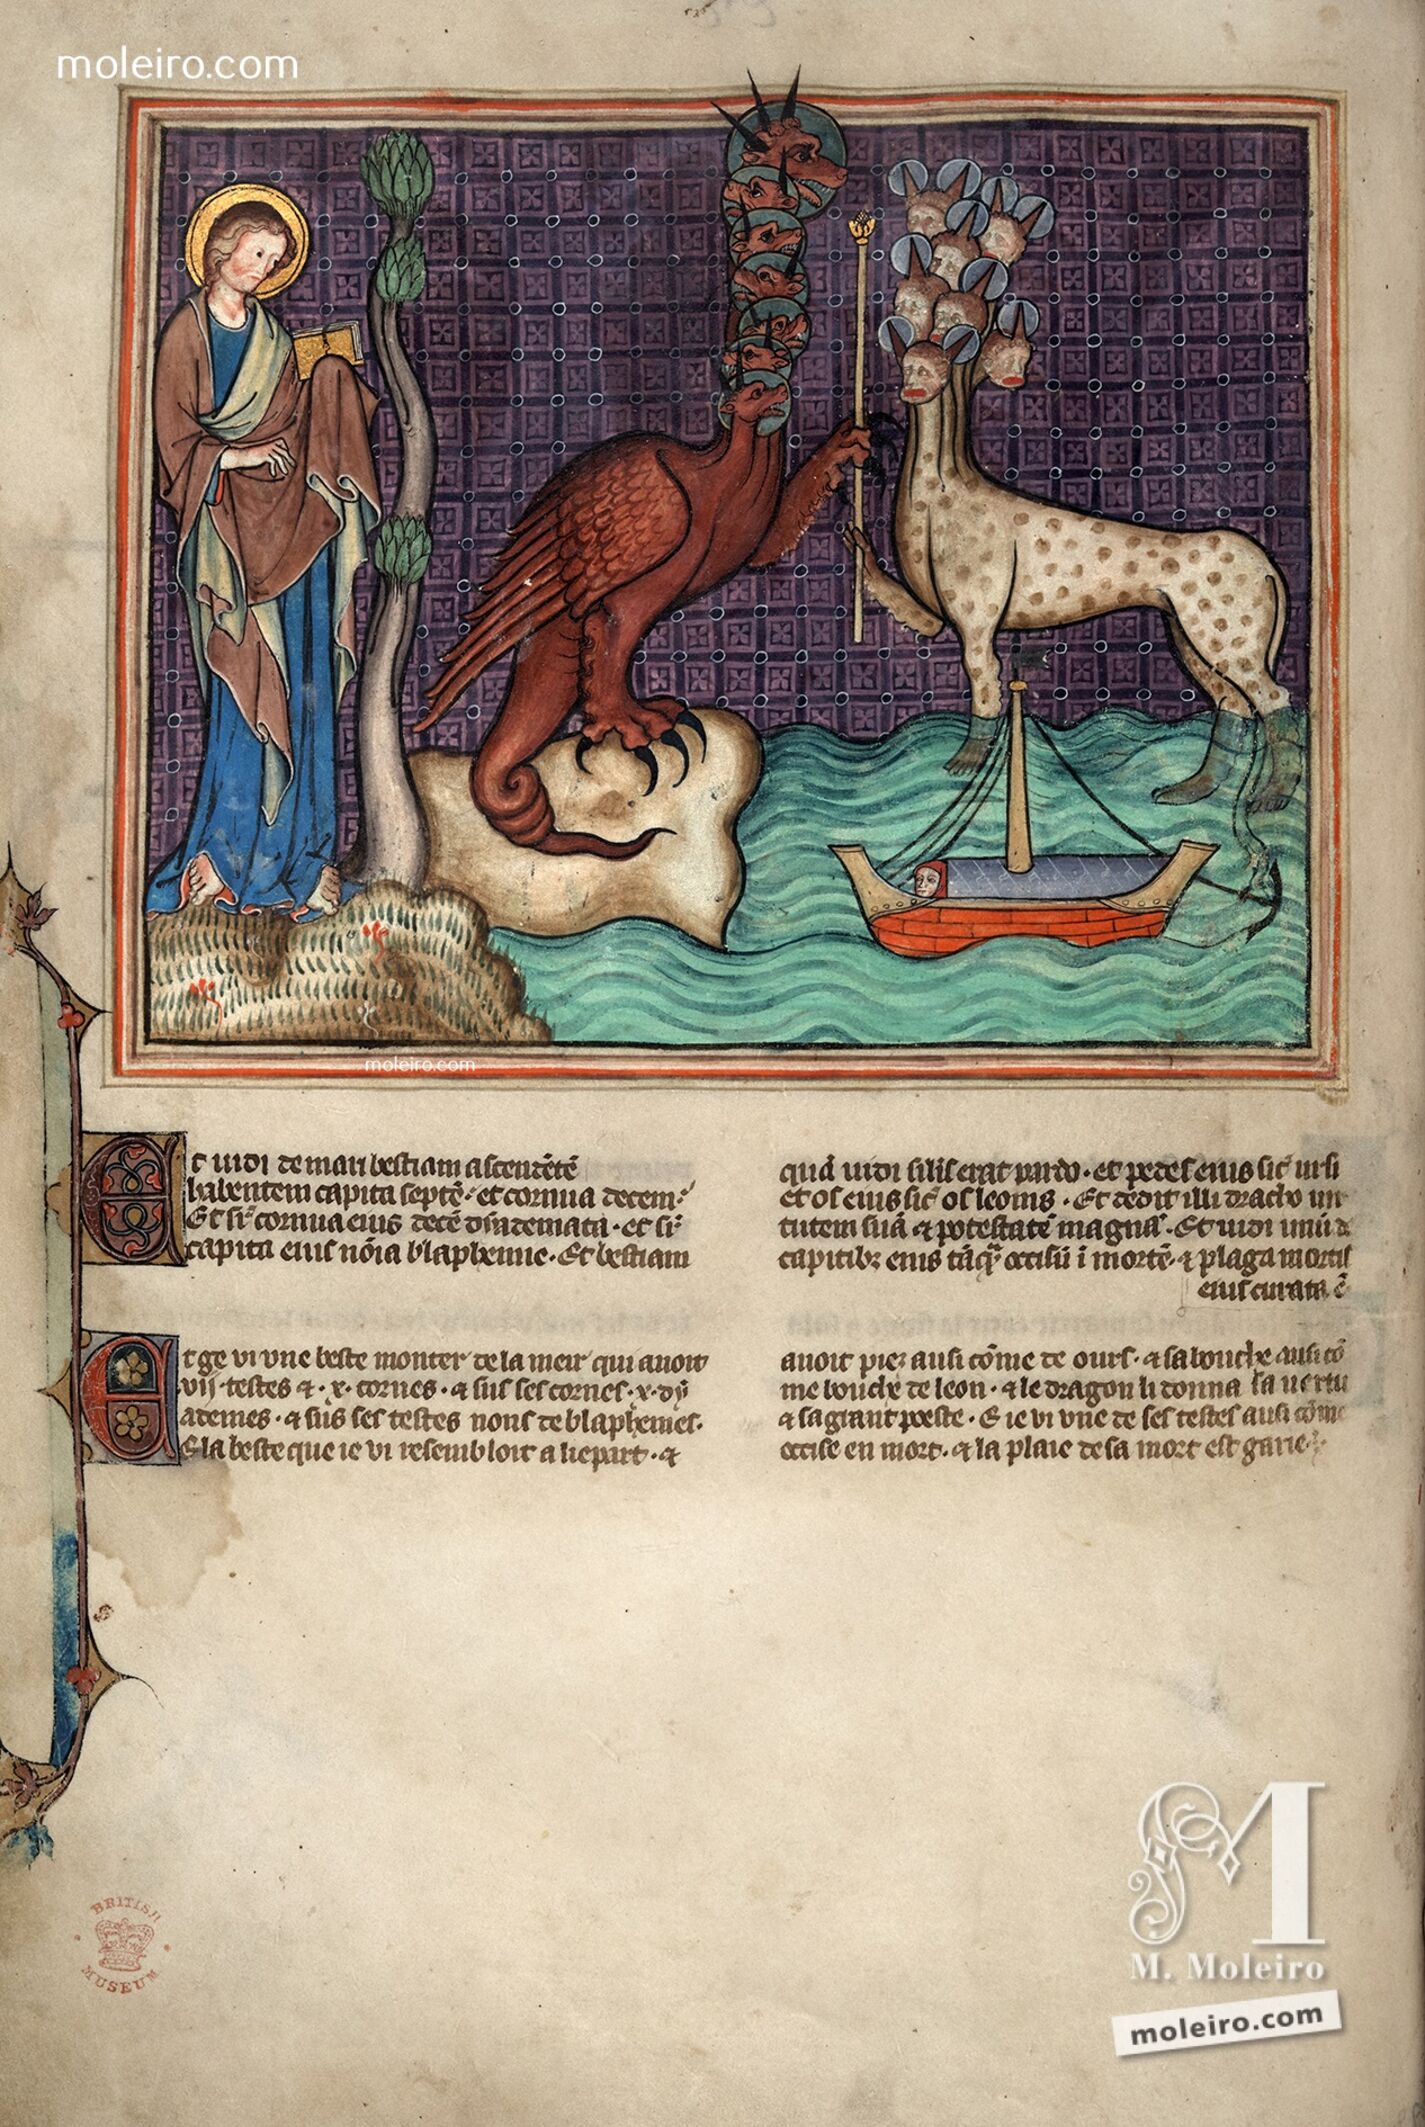 moleiro.com
moleiro.com
Et uidi de mari bestiam ascendētē
habentem capita septē· et cornua decem·
Et sr̄ cornua eius decē diademata· et sr̄
capita eius nōia blaphemie· Et bestiam
quā uidi silis erat pardo· et pedes eius sic̄ ursi
et os eius sic̄ os leonis· Et dedit illi draco uir
tutem suā & potestatē magnā· Et uidi unū de
capitibꝫ eius occisū ī mortē· & plaga mortis
eius curata ē
Et ge vi vne beste monter de la meir qui auoit
·vij· testes & ·x· cornes· & sus ses cornes ·x· dy
ademes· & sus ses testes nons de blaphemes·
E la beste que ie vi resembloit a liepart· &
auoit piez ausi cōme de ours· & sa bouche ausi cō
me bouche de leon· & le dragon li donna sa uertu
& sa grant poeste· E ie vi vne de ses testes ausi cōme
occise en mort· & la plaie de sa mort est garie
BRITISH
MUSEUM
M
M. Moleiro
moleiro.com